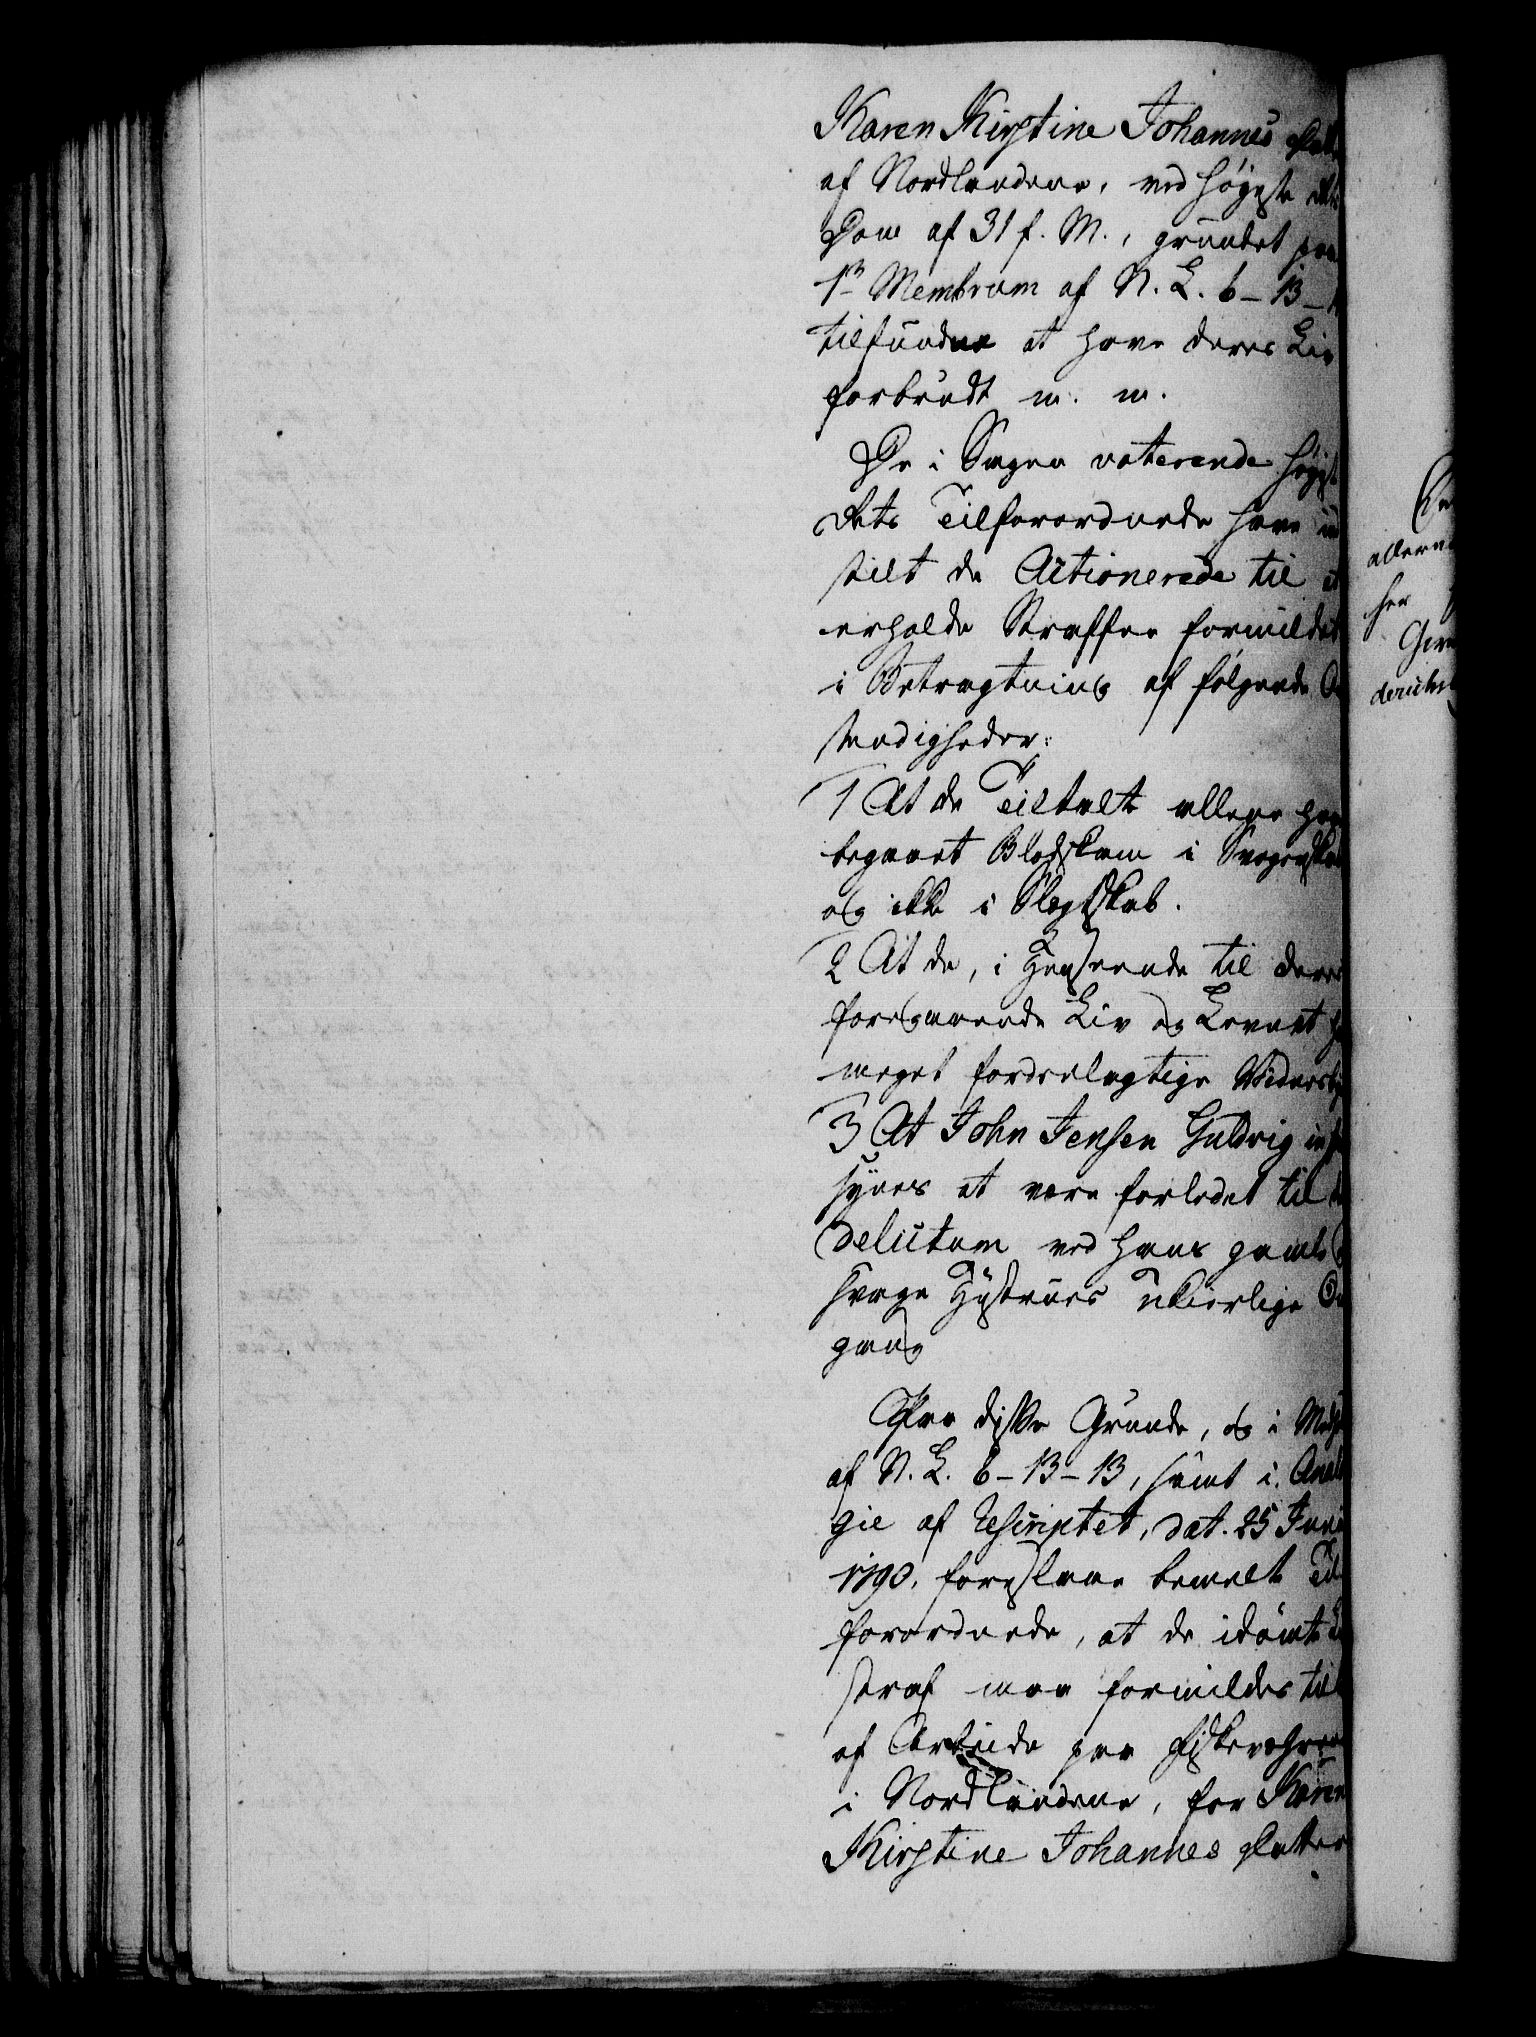 Karen Kirstine Johannes Dat
af Nordlandene, ved Høyeste Rets
Dom af 31 f. M., grundet paa
1te Membrum af N. L. 6-13-1
tilfundne at have deres Liv
forbrudt m. m.
De i Sagen voterende Høyeste
Rets Tilforordnede have ind
stilt de Actionerede til at
erholde Straffen formildet
i Betragtning af følgende Om
stændigheder:
1 At de Tiltalte allene have
begaaet Blodskam i Svogerskab
og ikke i Slægtskab.
2 At de, i Henseende til deres
foregaaende Liv og Levnet
meget fordeelagtige Vidnesby
3 At John Jensen Guldvig
synes at være forledet til
delictum ved hans gamle
svage Hustrues ukierlige Om
gang
Paa diske Grunde, og i Medf
af N. L. 6-13-13, samt i Analo
gie af Rescriptet, dat. 25 Juni
1790, foreslaae bemelte Til
forordnede, at de idømte Livs
straf maa formildes til
af Arbeide paa Fiskeværerne
i Nordlandene, for Karen
Kirstine Johannes Datter
allern
her
derudi